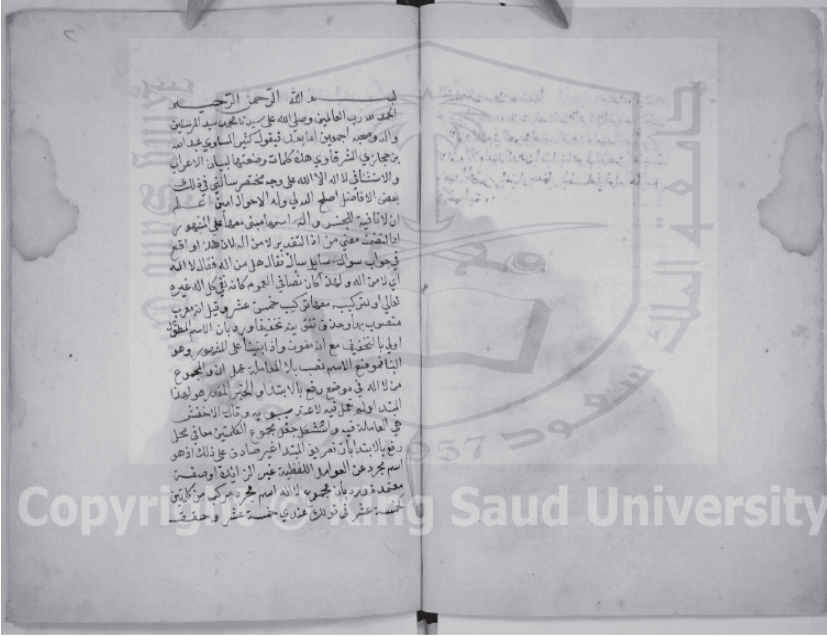 بسم الله الرحمن الرحيم
الحمد لله رب العالمين وصلى الله على سيدنا محمد سيد المرسلين
واله وصحبه اجمعين اما بعد فيقول كثير المساوي عبد الله
بن حجازي الشرقاوي هذه كلمات وضعتها لبيان الاعراب
والاستثنا في لا اله الا الله على وجه مختصر سالني في ذلك
بعض الافاضل اصلح الله لي وله الاحوال امين اعلم
ان لا نافية للجنس واله اسمها مبني معها على المشهور
اما لتضمنه معنى من اذ التقدير لا من اله لان هذا واقع
في جواب سوال سايل سال فقال هل من اله فقال لا اله
اي لا من اله ولهذا كان نصا في العموم كانه نفي كل اله غيره
تعالى او لتركيبه معها تركيب خمسة عشر وقيل انه معرب
منصوب بها وحذف تنوينه تخفيفا ورد بان الاسم المطول
اولى بالتخفيف مع انه منون واذا بنينا على المشهور وهو
البنا فموضع الاسم نصب بلا العاملة عمل ان والمجموع
من لا اله في موضع رفع بالابتدا والخبر المقدر هو لهذا
المبتدا ولم تعمل فيه لا عند سيبويه وقال الاخفش
هي العاملة فيه واستشكل جعل مجموع الكلمتين معا في محل
رفع بالابتدا بان تعريف المبتدا غير صادق على ذلك اذ هو
اسم مجرد عن العوامل اللفظية غير الزائدة او صفة
معتمدة ورد بان مجموع لا اله اسم مجرد مركب من كلمتين
كخمسة عشر في قولك عندي خمسة عشر
Copyright © King Saud University
جامعة الملك سعود
King Saud University
1957